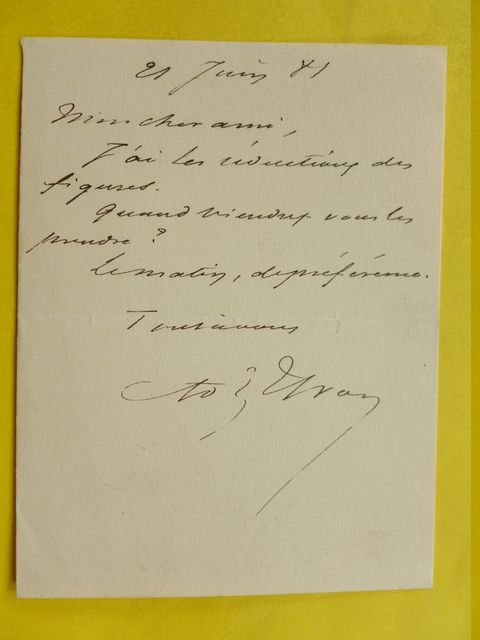 21 Juin 81
Mon cher ami,
J'ai les réductions des
figures.
Quand viendrez vous les
prendre ?
Le matin, de préférence.
Tout à vous
Ad Yvon